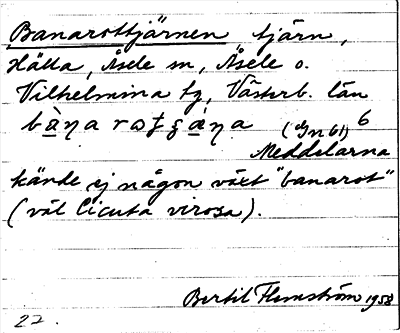 Banarottjärnen tjärn,
Hälla, Åsele sn, Åsele o.
Vilhelmina tg, Västerb. län
bàŋa rωţʂæ̀ŋa (Gn 61) 6
Meddelarna
kände ej någon växt "banarot"
(väl Cicuta virosa).
Bertil Flemström 1958
22.